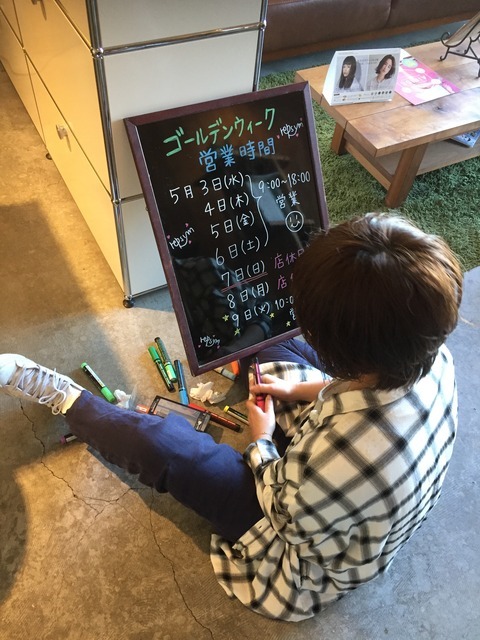 ゴールデンウィーク
営業時間
repsym
5月 3日(水)
4日(木)
5日(金)
6日(土)
9:00~18:00
営業
repsym
7日(日) 店休日
8日(月) 店
9日(火) 10:0
repsym